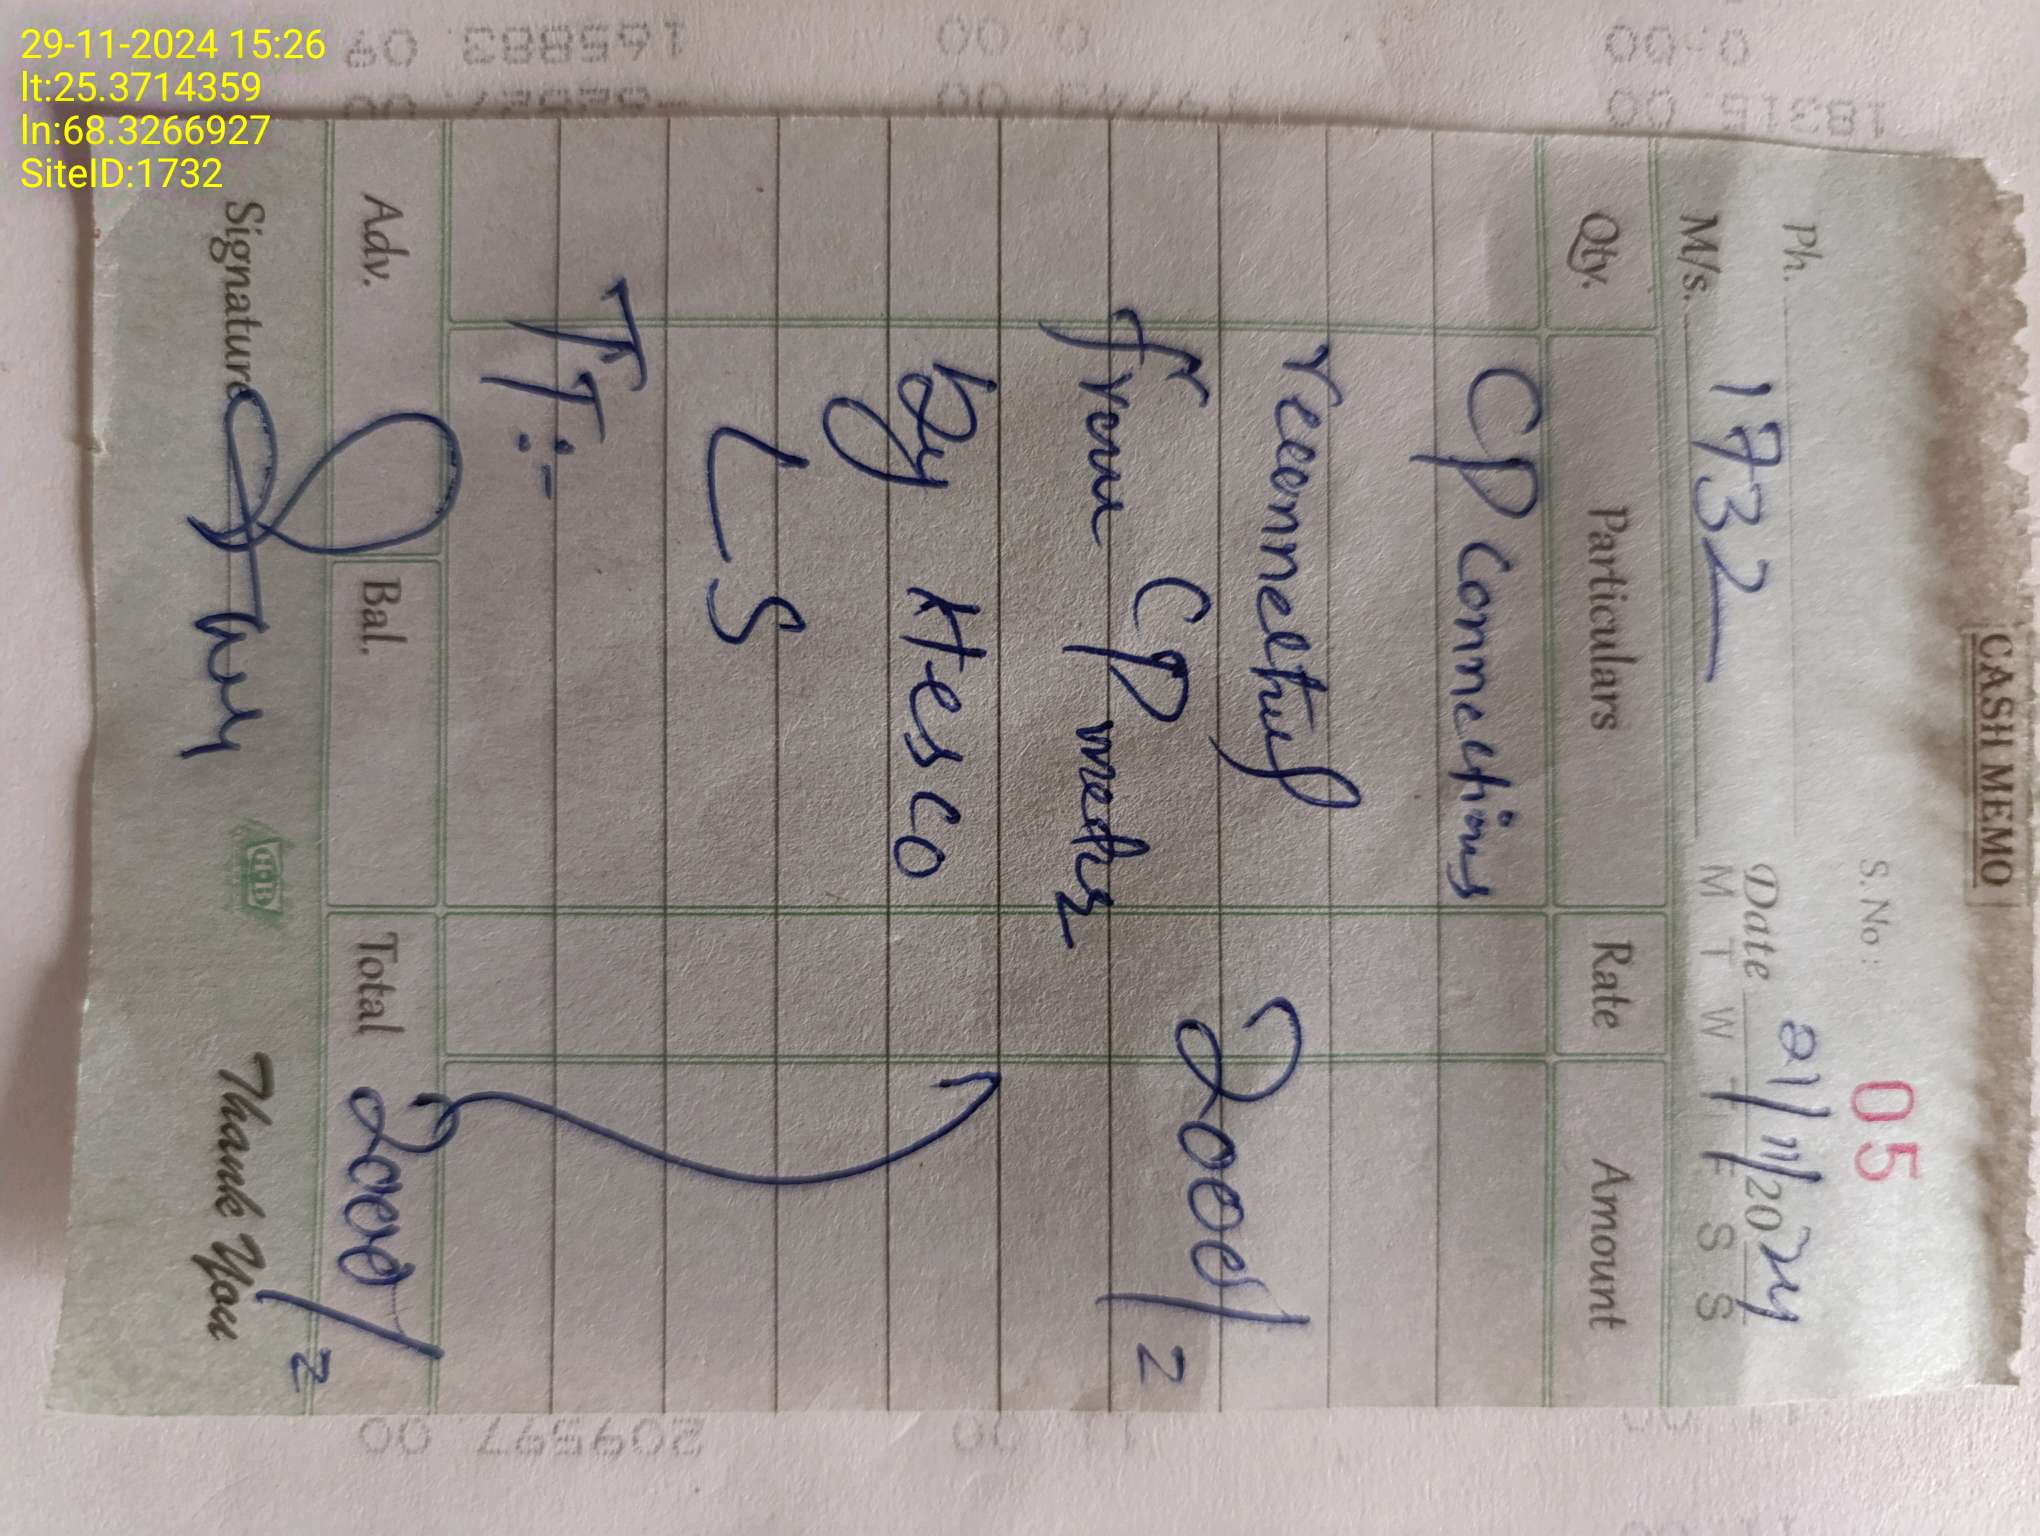 29-11-2024 15:26
lt:25.3714359
ln:68.3266927
SiteID:1732
CASH MEMO
S. No : 05
Ph.
Date 21/11/2024
M/s. 1732
M T W T F S S
Qty. Particulars Rate Amount
CP Connections
from CP 2000/
By Hesco
LS
TT:-
Adv. Bal. Total 2000/
Signature
Thank You
165883.09 0.00 0.00
209597.00